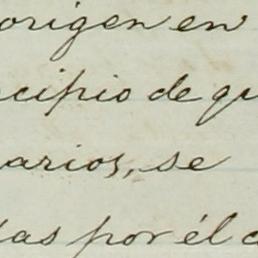 origen en
cipio de qu
arios, se
las por él